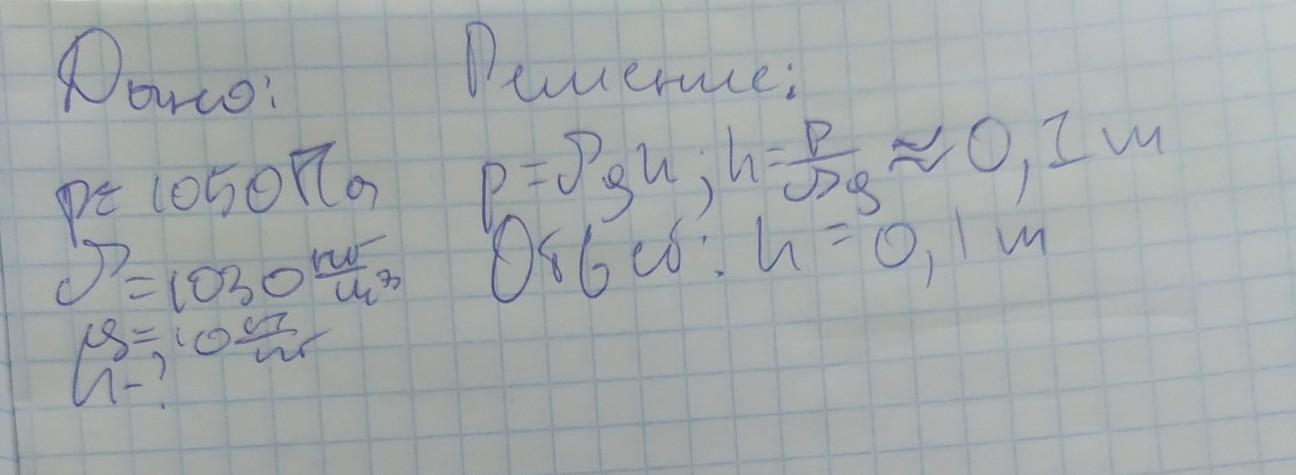 Дано:
p = 1050 Па
ρ = 1030 кг/м³
g = 10 Н/кг
h - ?
Решение:
p = ρgh; h = p/ρg ≈ 0,1 м
Ответ: h = 0,1 м